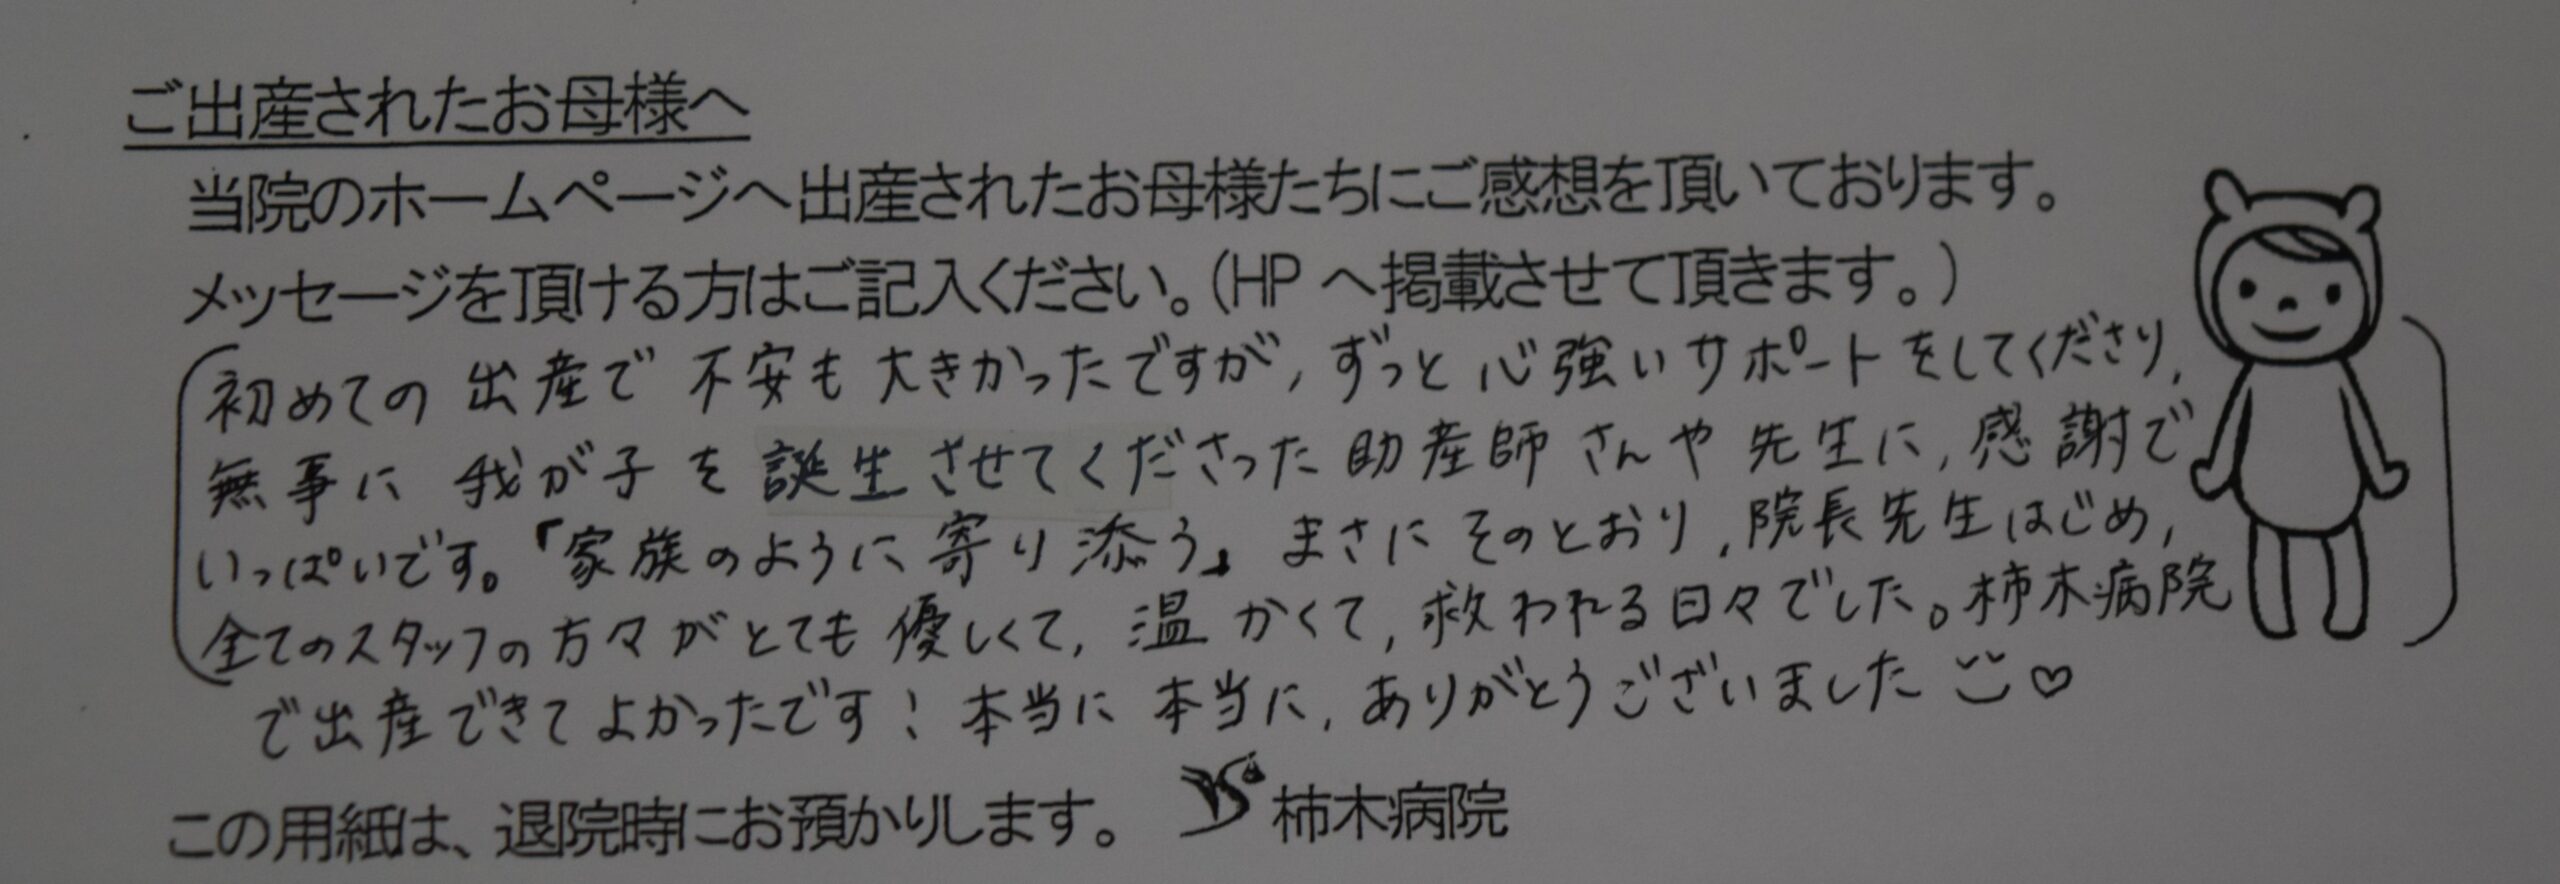 ご出産されたお母様へ
当院のホームページへ出産されたお母様たちにご感想を頂いております。
メッセージを頂ける方はご記入ください。(HP へ掲載させて頂きます。)
初めての出産で不安も大きかったですが, ずっと心強いサポートをしてくださり,
無事に我が子を誕生させてくださった助産師さんや先生に, 感謝で
いっぱいです。「家族のように寄り添う」まさにそのとおり, 院長先生はじめ,
全てのスタッフの方々がとても優しくて, 温かくて, 救われる日々でした。柿木病院
で出産できてよかったです! 本当に本当に, ありがとうございました♡
この用紙は、退院時にお預かりします。 柿木病院